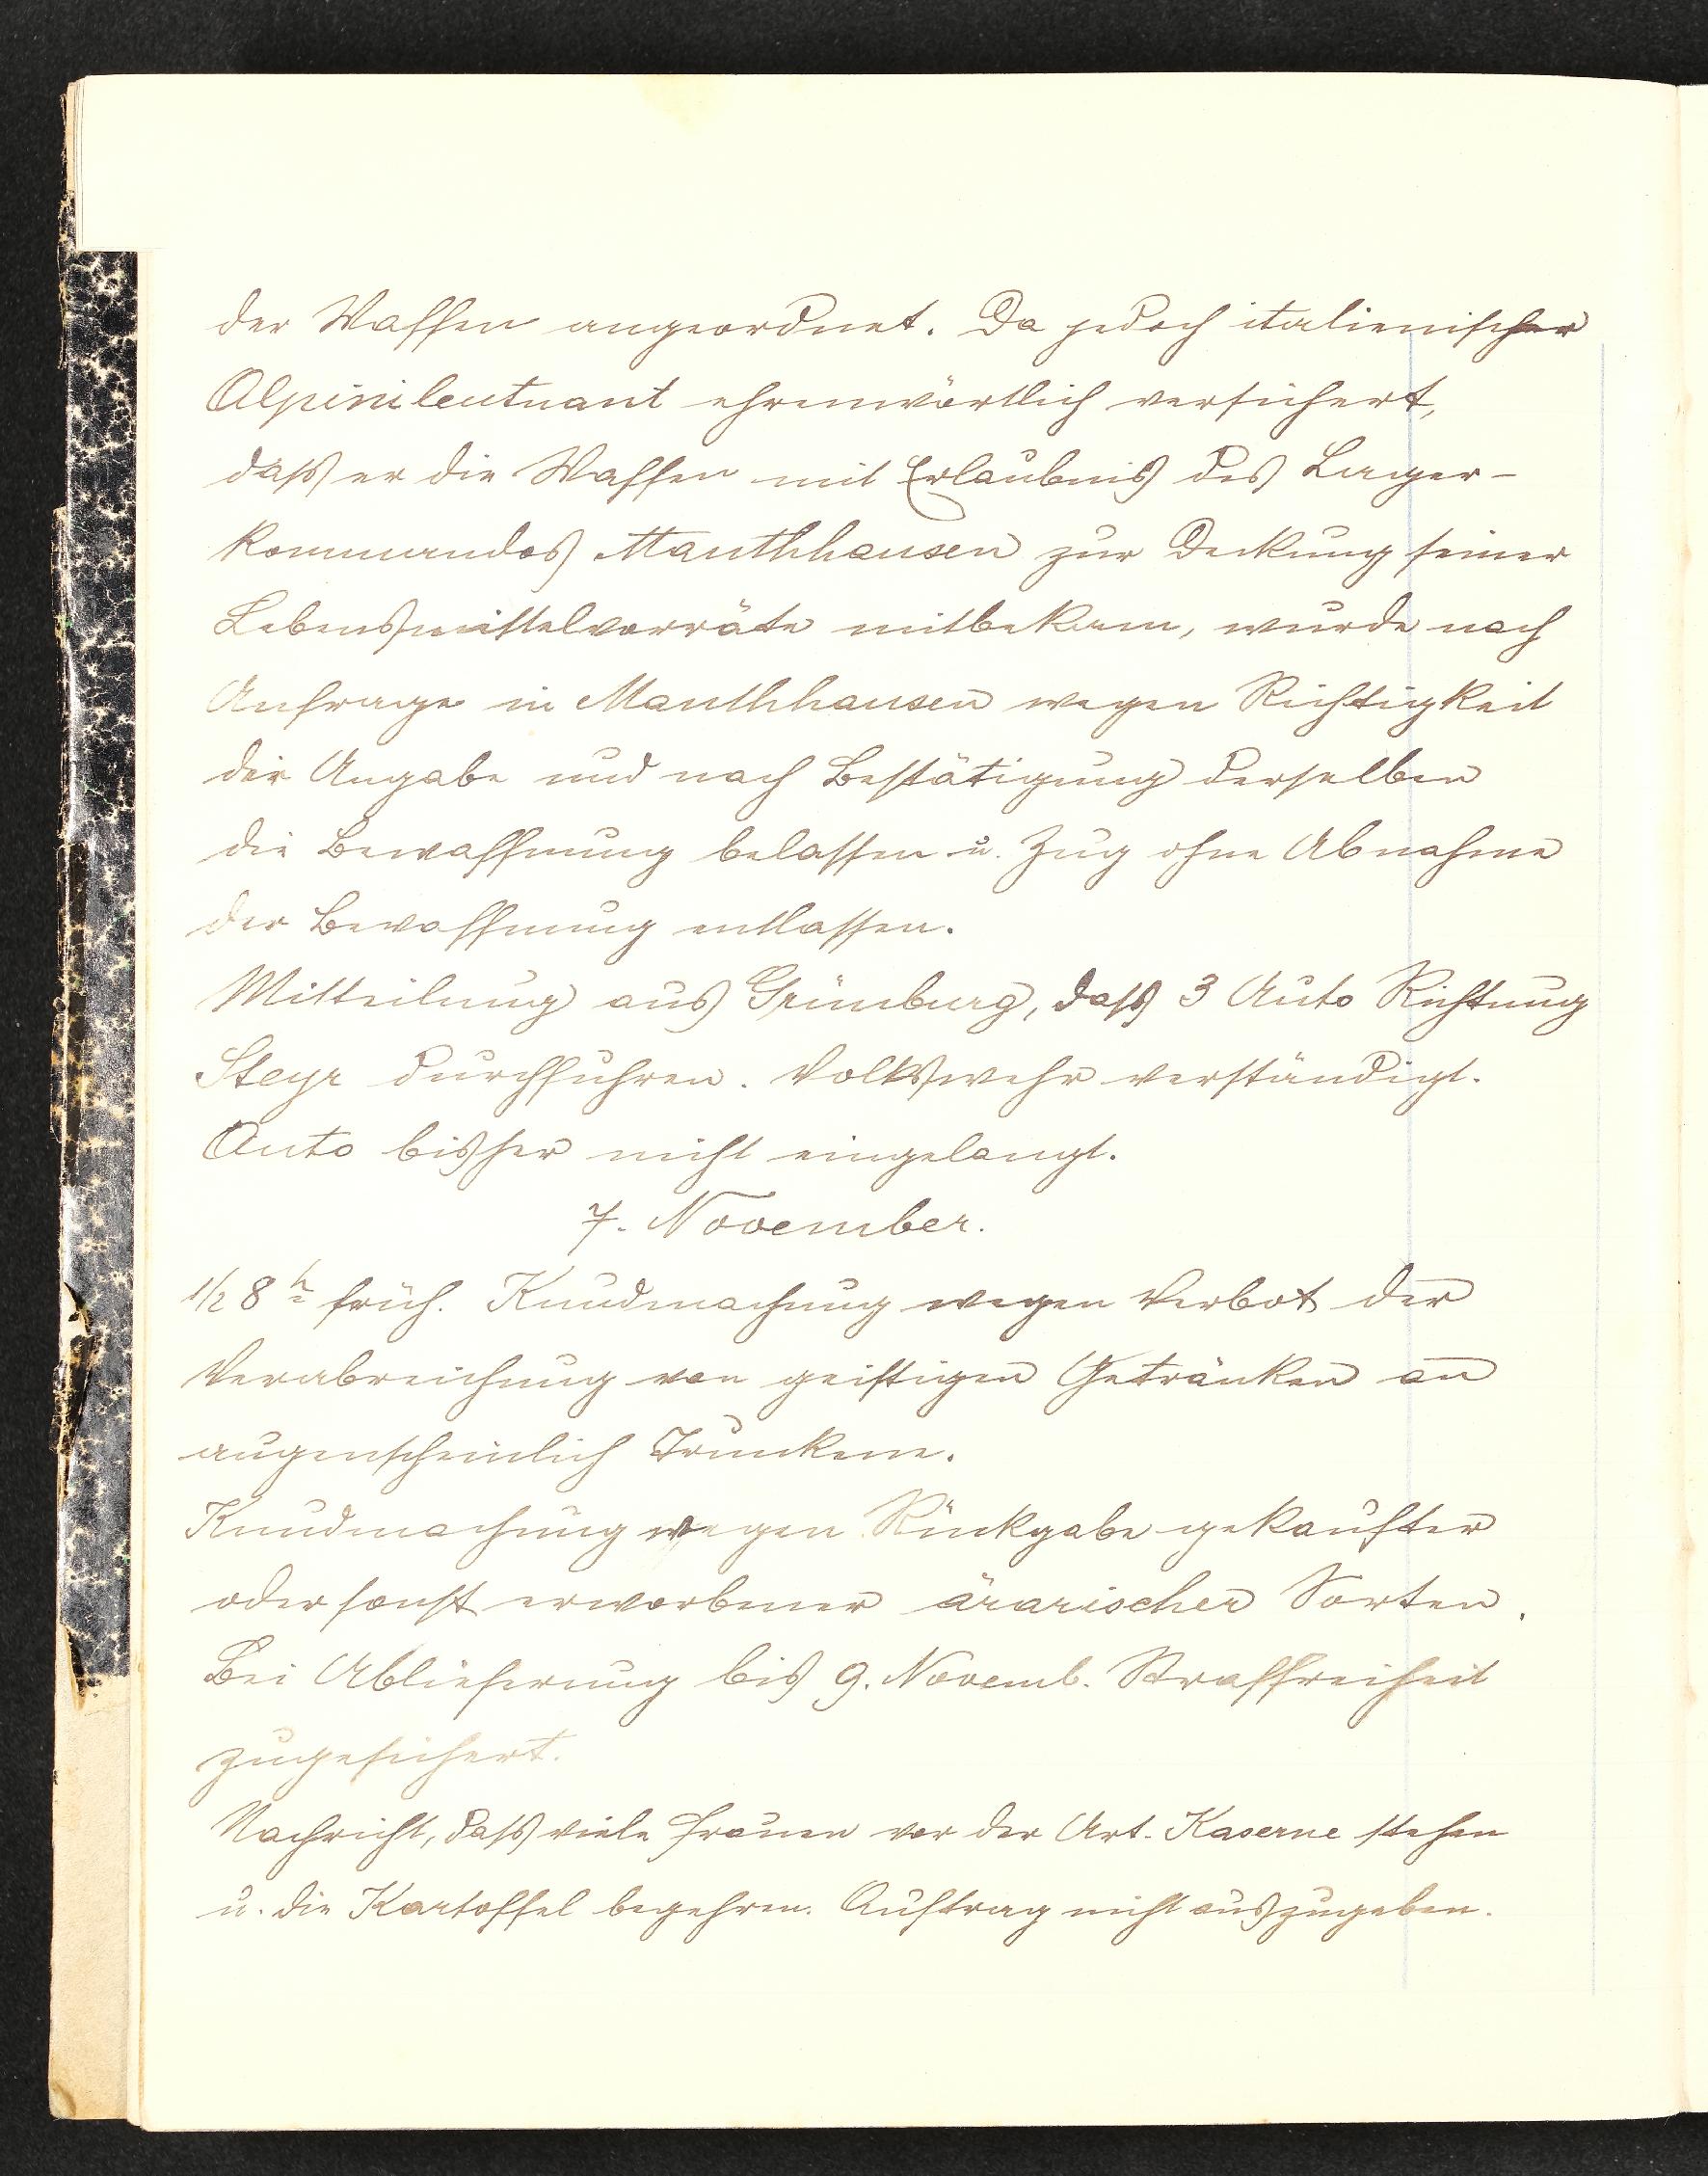 der Waffen angeordnet. Da jedoch italienischer
Alpinileutnant ehrenwörtlich versichert,
daß er die Waffen mit Erlaubnis des Lager-
kommandos Mauthhausen zur Deckung seiner
Lebensmittelvorräte mitbekam, wurde nach
Anfrage in Mauthhausen wegen Richtigkeit
der Angabe und nach Bestätigung derselben
die Bewaffnung belassen u. Zug ohne Abnahme
der Bewaffnung entlassen.
Mitteilung aus Grünburg, daß 3 Auto Richtung
Steyr durchfuhren. Volkswehr verständigt.
Auto bisher nicht eingelangt.
7. November.
1/2 8 h früh. Kundmachung wegen Verbot der
Verabreichung von geistigen Getränken an
augenscheinlich Trunkene.
Kundmachung wegen Rückgabe gekaufter
oder sonst erworbener ärarischer Sorten.
Bei Ablieferung bis 9. Novemb. Straffreiheit
zugesichert.
Nachricht, daß viele Frauen vor der Art. Kaserne stehen
u. die Kartoffel begehren. Auftrag nicht auszugeben.